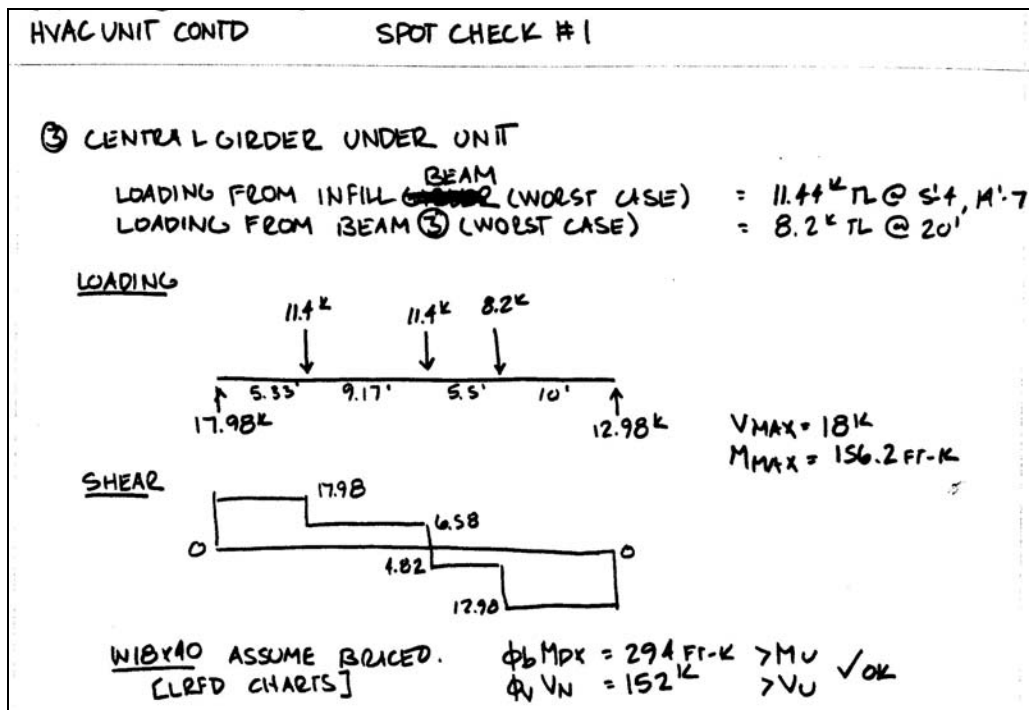 HVAC UNIT CONTD SPOT CHECK #1
③ CENTRAL GIRDER UNDER UNIT
BEAM
LOADING FROM INFILL (WORST CASE) = 11.44ᴷ TL @ 5'.4, 14'-7
LOADING FROM BEAM ③ (WORST CASE) = 8.2ᴷ TL @ 20'
LOADING
11.4ᴷ 11.4ᴷ 8.2ᴷ
5.33' 9.17' 5.5' 10'
17.98ᴷ 12.98ᴷ
VMAX = 18ᴷ
MMAX = 156.2 FT-K
SHEAR
17.98
6.58
0 0
4.82
12.98
W18x40 ASSUME BRACED. ϕb MPX = 294 FT-K > MU
[LRFD CHARTS] ϕv VN = 152ᴷ > VU ✓OK